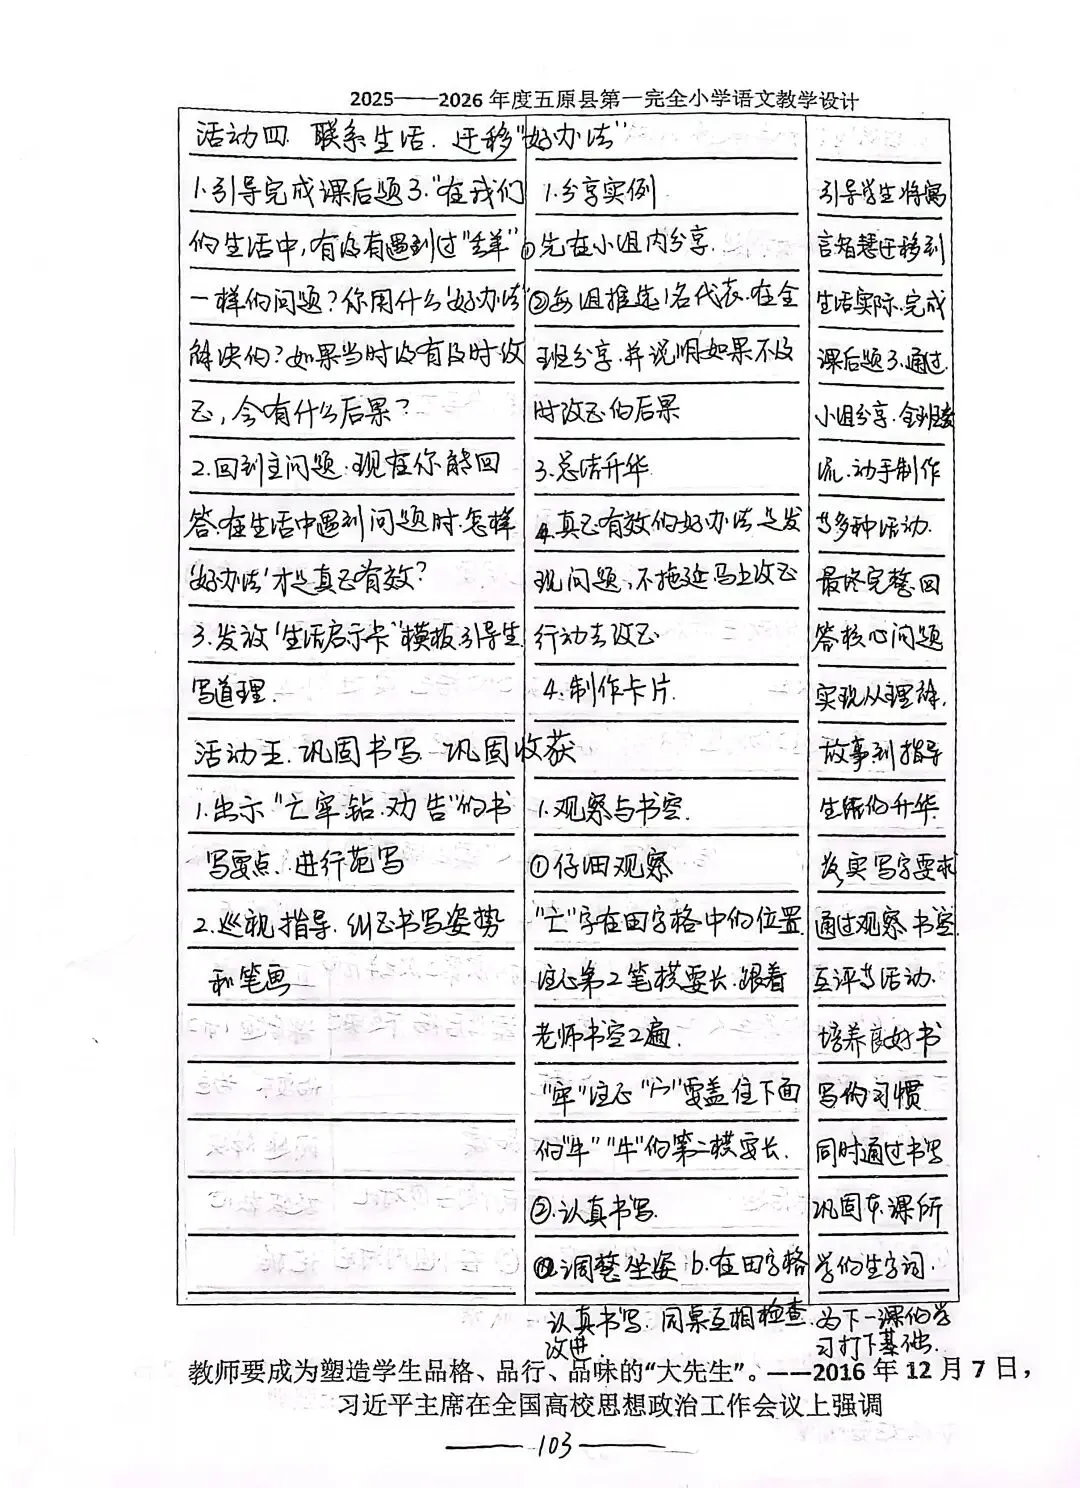 2025——2026 年度五原县第一完全小学语文教学设计
活动四. 联系生活. 迁移"好办法"
1.引导完成课后题3."在我们
的生活中,有没有遇到过"丢羊"
一样的问题?你用什么"好办法"
解决的?如果当时没有及时改
正,会有什么后果?
2.回到主问题.现在你能回
答.在生活中遇到问题时.怎样
'好办法'才是真正有效?
3.发放'生活启示卡"模板.引导生
写道理.
1.分享实例
①先在小组内分享.
②每组推选1名代表.在全
班分享.并说明如果不及
时改正的后果
3.总结升华.
4.真正有效的好办法是发
现问题,不拖延马上改正
行动去改正
4.制作卡片.
活动五.巩固书写 巩固收获
1.出示"亡牢钻.劝告"的书
写要点.进行范写
2.巡视指导.纠正书写姿势
和笔画
1.观察与书空.
①仔细观察
"亡"字在田字格中的位置
注意第2笔横要长.跟着
老师书空2遍.
"牢"注意"宀"要盖住下面
的"牛""牛"的第二横要长.
②.认真书写.
a.调整坐姿 b.在田字格
认真书写.同桌互相检查.
改进.
引导学生将寓
言智慧迁移到
生活实际.完成
课后题3.通过
小组分享.全班交
流.动手制作
等多种活动.
最终完整回
答核心问题
实现从理解.
故事到指导
生活的升华.
落实写字要求
通过观察 书空.
互评等活动.
培养良好书
写的习惯.
同时通过书写
巩固本课所
学的生字词.
为下一课的学
习打下基础.
教师要成为塑造学生品格、品行、品味的“大先生”。——2016 年 12 月 7 日，
习近平主席在全国高校思想政治工作会议上强调
——103——